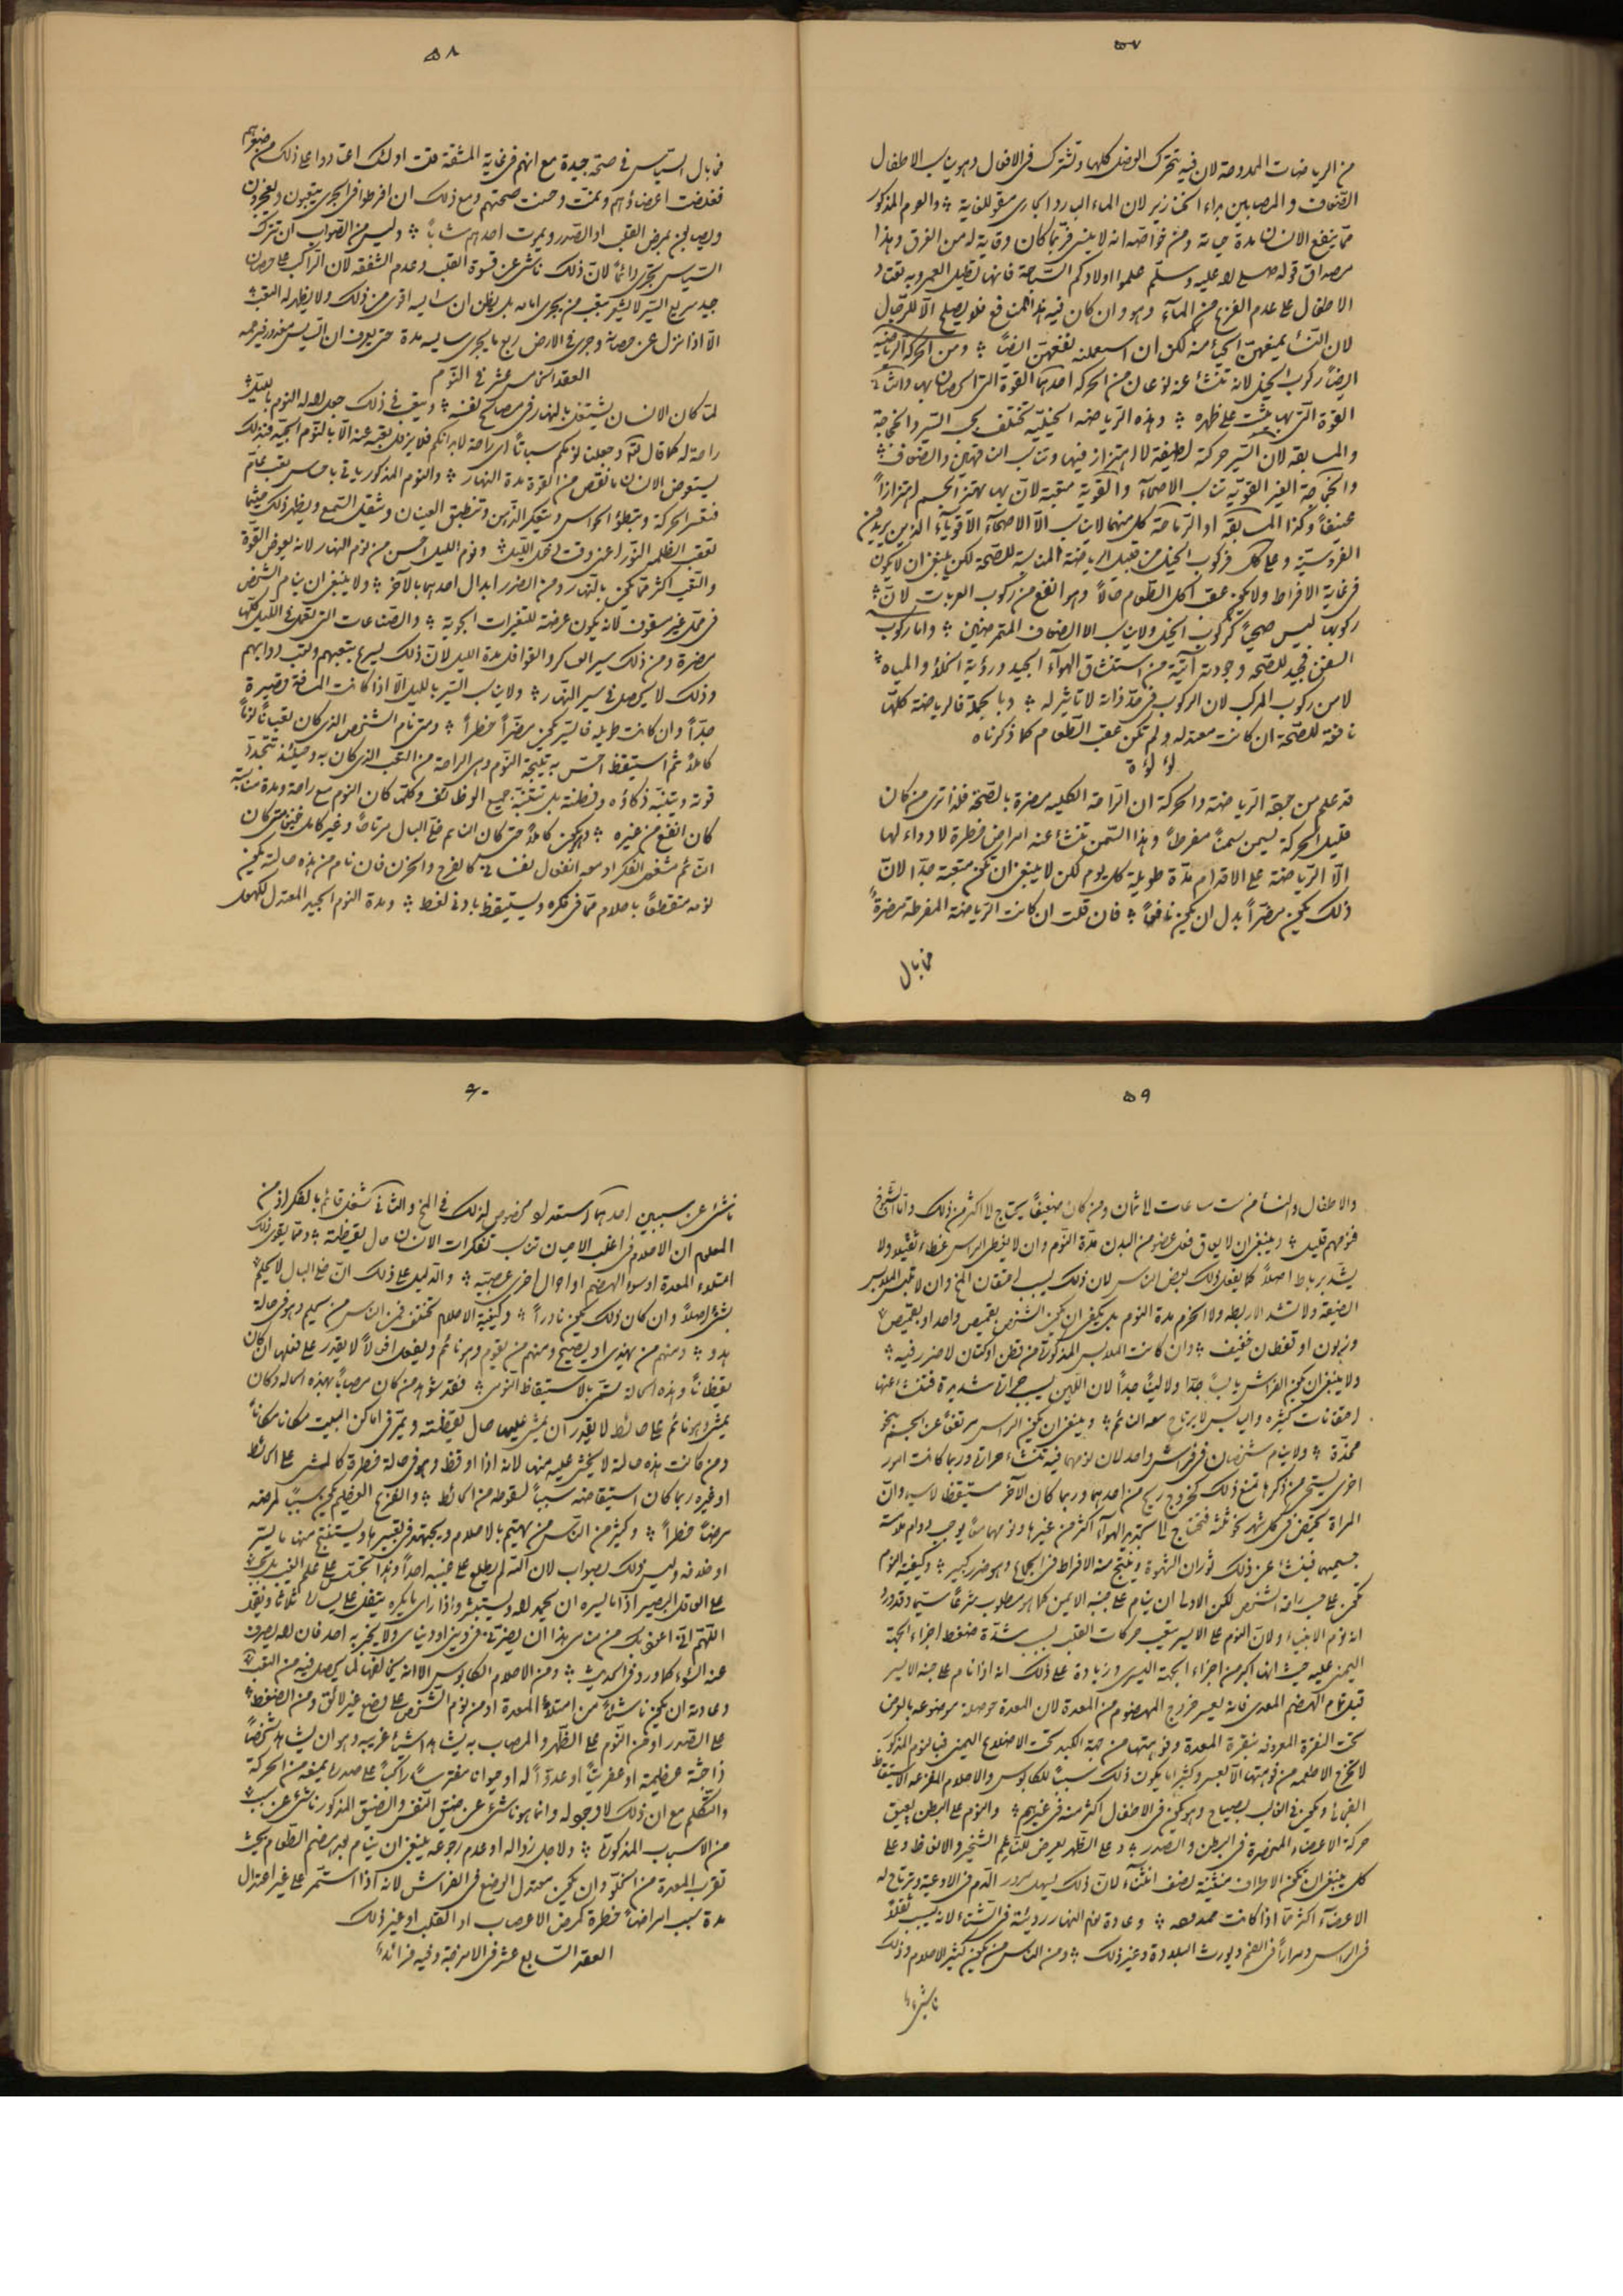 ٥٧
من الرياضات الممدوحة لان فيه تتحرك العضل كلها وتشترك في الافعال وهو يناسب الاطفال
الضعاف والمصابين بداء الخنازير لان الماء البارد الجاري مقو للغاية ؞ والعوم المذكور
مما ينفع الانسان مدة حياته ومن خواصه انه لا ينسى فربما كان وقاية له من الغرق وهذا
مصداق قوله صلى الله عليه وسلم علموا اولادكم السباحة فانها تطيل العمر وبه تعتاد
الاطفال على عدم الفزع من الماء وهو وان كان فيه هذه المنافع فلا يصلح الا للرجال
لان النساء يمنعهن الحياء منه لكن ان استعملنه نفعهن ايضاً ؞ ومن الحركة الرياضية
ايضاً ركوب الخيل لانه تنشأ عنه نوعان من الحركة احدهما القوة التي الحصان بها والثانية
القوة التي بها يثبت على ظهره ؞ وهذه الرياضة الخيلية تختلف بحسب السير والخجاجة
والمسابقة لان السير حركة لطيفة لا اهتزاز فيها وتناسب الناقهين والضعاف ؞
والخجاجة الغير القوية تناسب الاصحآء والقوية متعبة لان بها يهتز الجسم اهتزازاً
عنيفاً وكذا المسابقة او الرماحة كل منهما لا يناسب الا الاصحآء الاقوياء الذين يريدون
الفروسية وعلى كل فركوب الخيل من قبيل الرياضة المناسبة للصحة لكن ينبغي ان لا يكون
في غاية الافراط ولا يكون عقب اكل الطعام حالاً وهو انفع من ركوب العربات لان ؞
ركوبها ليس صحياً كركوب الخيل ولا يناسب الا الضعاف المتمرضين ؞ واما ركوب
السفن فجيد للصحة وجودته آتية من استنشاق الهوآء الجيد ورؤية الخلاء والمياه ؞
لا من ركوب المركب لان الركوب في حد ذاته لا تاثير له ؞ وبالجملة فالرياضة كلها
نافعة للصحة ان كانت معتدلة ولم تكن عقب الطعام كما ذكرناه
لؤلؤة
قد علم من جهة الرياضة والحركة ان الراحة الكلية مضرة بالصحة فلذا ترى من كان
قليل الحركة يسمن سمناً مفرطاً وهذا السمن تنشأ عنه امراض خطرة لا دواء لها
الا الرياضة على الاقدام مدة طويلة كل يوم لكن لا ينبغي ان تكون متعبة جداً لان
ذلك يكون مضراً بدل ان يكون نافعاً ؞ فان قلت ان كانت الرياضة المفرطة مضرةً
فما بال
٥٨
فما بال السياس في صحة جيدة مع انهم في غاية المشقة قلت اولئك اعتادوا على ذلك من صغرهم
فغلظت اعضاؤهم ونمت وحسنت صحتهم ومع ذلك ان افرطوا في الجري يتعبون ويعجزون
ويصابون بمرض القلب او الصدر ويموت احدهم شاباً ؞ وليس من الصواب ان تترك
السياس تجري دائماً لان ذلك ناشئ عن قسوة القلب وعدم الشفقة لان الراكب على حصان
جيد سريع السير لا يشعر بتعب من يجري امامه بل يظن ان سايسه اقوى من ذلك ولا يظهر له التعب ؞
الا اذا نزل عن حصانه وجرى في الارض ربع ما يجري سايسه مدة حتى يعرف ان السايس معذور فيرحمه
العقد السادس عشر في النوم
لما كان الانسان يشتغل بالنهار في مصالح نفسه ؞ ويتعب في ذلك جعل الله له النوم بالليل ؞
راحة له كما قال تعالى وجعلنا نومكم سباتاً اي راحة لابدانكم فلا يزول تعبه عنه الا بالنوم الجيد فبذلك
يستعوض الانسان ما نقص من القوة مدة النهار ؞ والنوم المذكور ياتي باحساس بتعب عام
فتعسر الحركة وتبطؤ الحواس ويتعكر الذهن وتنطبق العينان ويثقل السمع ويظهر ذلك حينما
تعقب الظلمة النور اعني وقت دخول الليل ؞ ونوم الليل احسن من نوم النهار لانه يعوض القوة
والتعب اكثر مما يكون بالنهار ومن الضرر ابدال احدهما بالآخر ؞ ولا ينبغي ان ينام الشخص
في محل غير مسقوف لانه يكون عرضة للتغيرات الجوية ؞ والصناعات التي تعمل في الليل كلها
مضرة ومن ذلك سير العساكر والقوافل مدة الليل لان ذلك يسرع بتعبهم وتعب دوابهم
وذلك لا يحصل في سير النهار ؞ ولا يناسب السير بالليل الا اذا كانت المسافة قصيرة
جداً وان كانت طويلة فالسير يكون مضراً خطراً ؞ ومتى نام الشخص الذي كان تعباً نوماً
كاملاً ثم استيقظ احس به نتيجة النوم وهي الراحة من التعب الذي كان به وحينئذ تتجدد
قوته ويتنبه ذكاؤه وفطنته بل تتنبه جميع الوظائف وكلما كان النوم مع راحة ومدة مناسبة
كان انفع من غيره ؞ ويكون كاملاً متى كان النائم خلي البال مرتاحاً وغير كامل فيما متى كان
النائم مشغول الفكر او معه انفعال نفساني كالفرح والحزن فان نام من هذه حالته يكون
نومه متقطعاً باحلام مما في فكره ويستيقظ بادنى لغط ؞ ومدة النوم الجيد المعتدل للكهول
٥٩
والاطفال والنساء من ست ساعات لا ثمان ومن كان ضعيفاً يحتاج لا اكثر من ذلك واما الشيوخ
فنومهم قليل ؞ وينبغي ان لا يعاق فعل عضو من البدن مدة النوم وان لا يغطى الراس غطاء ثقيلا ولا
يشد برباط اصلاً كما يفعل ذلك بعض الناس لان ذلك يسبب احتقان المخ وان لا تلبس الملابس
الضيقة ولا تشد الاربطة ولا الحزم مدة النوم بل يكفي ان يكون الشخص بقميص واحد او بقميص ؞
وزبون او قفطان خفيف ؞ وان كانت الملابس المذكورة من قطن او كتان لا ضرر فيه ؞
ولا ينبغي ان يكون الفراش يابساً جداً ولا ليناً جداً لان اللين يسبب حرارة شديدة فتنشأ عنها
احتقانات كثيرة واليابس لا يرتاح معه النائم ؞ وينبغي ان يكون الراس مرتفعاً عن الجسم بنحو
مخدة ؞ ولا ينام شخصان في فراش واحد لان نومهما فيه تنشأ عنه حرارة وربما كانت امور
اخرى يستحى من ذكرها تمنع ذلك كخروج ريح من احدهما وربما كان الآخر مستيقظا لا سيما وان
المراة تحيض في كل شهر نحو ثلثه فتحتاج لا تجديد الهوآء اكثر من غيرها ونومهما معاً يوجب دوام ملامسة
جسميهما فينشأ عن ذلك ثوران الشهوة وينتج منه الافراط في الجماع وهو ضرر كبير ؞ وكيفية النوم
تكون على حسب راحة الشخص لكن الاولى ان ينام على جنبه الايمن كما هو مطلوب شرعاً سيما وقد ورد
انه نوم الانبياء ولان النوم على الايسر يتعب حركات القلب بسبب شدة ضغط اجزاء الجهة
اليمنى عليه حيث انها اكبر من اجزاء الجهة اليسرى وزيادة على ذلك انه اذا نام على جنبه الايسر
قبل تمام الهضم المعدي فانه يعسر خروج المهضوم من المعدة لان المعدة حوصلة موضوعة بالعرض
تحت النقرة المعروفة بنقرة المعدة وفوهتها من جهة الكبد تحت الاضلاع اليمنى فبالنوم المذكور
لا تخرج الاطعمة من فوهتها الا بعسر وكثيراً ما يكون ذلك سبباً للكابوس والاحلام المفزعة الاستيقاظ
الفجائي ويكون في الغالب بصياح وهو يكون في الاطفال اكثر منه في غيرهم ؞ والنوم على البطن يعيق
حركة الاعضاء المنحصرة في البطن والصدر ؞ وعلى الظهر يعرض للنائم الشخير والانعاظ وعلى
كل ينبغي ان تكون الاطراف منثنية نصف انثنآء لان ذلك يسهل مرور الدم في الاوعية وترتاح له
الاعضآء اكثر مما اذا كانت ممدودة ؞ وعادة نوم النهار رديئة في الشتاء لانه يسبب ثقلاً
في الراس ومراراً في الفم ويورث البلادة وغير ذلك ؞ ومن الناس من يكون كثير الاحلام وذلك
ناشئ
٦٠
ناشئ عن سببين احدهما استعداد مخصوص لذلك في المخ والثاني شغل قائم بالفكر اذ من
المعلوم ان الاحلام في اغلب الاحيان تناسب تفكرات الانسان حال يقظته ؞ ومما يقوي ذلك
امتلاء المعدة او سوء الهضم او احوال اخرى عصبية ؞ والدليل على ذلك ان خلي البال لا يحلم
بشئ اصلاً وان كان ذلك يكون نادراً ؞ وكيفية الاحلام تختلف فمن الناس من يحلم وهو في حالة
هدو ؞ ومنهم من يهذي او يصيح ومنهم من يقوم وهو نائم ويفعل افعالاً لا يقدر على فعلها ان كان
يقظاناً وهذه الحالة تسمى بالاستيقاظ النومي ؞ فقد شوهد من كان مصاباً بهذه الحالة وكان
يمشي وهو نائم على حائط لا يقدر ان يمشي عليها حال يقظته ويمر في اماكن البيت مكاناً مكاناً
ومن كانت هذه حالته لا يخشى عليه منها لانه اذا اوقظ وهو في حالة خطرة كالمشي على الحائط
او غيره ربما كان استيقاظه سبباً لسقوطه من الحائط ؞ والفزع العظيم يكون سبباً لمرضه
مرضاً خطراً ؞ وكثير من الناس من يهتم بالاحلام ويجتهد في تعبيرها ويستنتج منها ما يسر
او ضده وليس ذلك بصواب لان الله لم يطلع على غيبه احداً وهذا تجسس على علم الغيب بل يجب
على العاقل البصير اذا راى ما يسره ان يحمد الله ويستبشر واذا راى ما يكره يتفل على يساره ثلاثاً ويقول
اللهم اني اعوذ بك من منامي هذا ان يضرني في ديني او دنياي ولا يخبر به احد فان الله يصرف
عنه السوء كما ورد في الحديث ؞ ومن الاحلام الكابوس الا انه يخالفها لما يحصل فيه من التعب
وعادته ان يكون ناشئاً من امتلاء المعدة او من نوم الشخص على وضع غير لائق ومن الضغط ؞
على الصدر او من النوم على الظهر والمصاب به يشاهد اشياء غريبة وهو ان يشاهد شخصاً
ذا جثة عظيمة او عفريتاً او عدواً له او حيوانا مفترساً راكباً على صدره يمنعه من الحركة
والتكلم مع ان ذلك لا وجود له وانما هو ناشئ عن ضيق النفس والضيق المذكور ناشئ عن سبب
من الاسباب المذكورة ؞ ولاجل زواله او عدم رجوعه ينبغي ان ينام بعد هضم الطعام بحيث
تقرب المعدة من الخلو وان يكون معتدل الوضع في الفراش لانه اذا استمر على غير اعتدال
مدة سبب امراضاً خطرة كمرض الاعصاب او القلب او غير ذلك
العقد السابع عشر في الامزجة وفيه فرائد